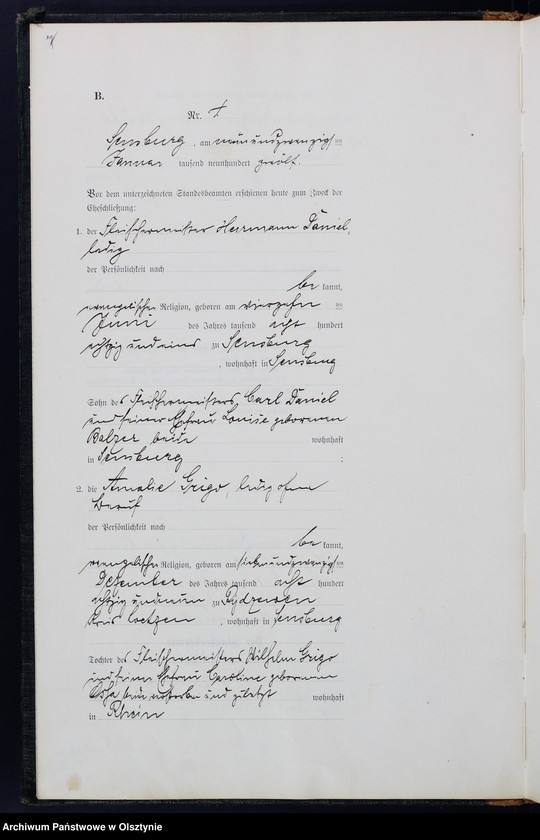 B.
Nr. 4
Sensburg, am neunundzwanzigsten
Januar tausend neunhundert zwölf.
Vor dem unterzeichneten Standesbeamten erschienen heute zum Zweck der
Eheschließung:
1. der Fleischermeister Herrmann Daniel,
ledig
der Persönlichkeit nach
be kannt,
evangelischer Religion, geboren am vierzehnten
Juni des Jahres tausend acht hundert
achtzig und eins zu Sensburg
, wohnhaft in Sensburg
Sohn des Fleischermeisters Carl Daniel
und seiner Ehefrau Louise geborenen
Balzer beide wohnhaft
in Sensburg ;
2. die Amalie Grigo, ledig ohne
Beruf
der Persönlichkeit nach
be kannt,
evangelischer Religion, geboren am siebenundzwanzigsten
Dezember des Jahres tausend acht hundert
achtzig und neun zu Rydzewen
Kreis Loetzen, wohnhaft in Sensburg
Tochter des Fleischermeisters Wilhelm Grigo
und seiner Ehefrau Caroline geborenen
beide verstorben und zuletzt wohnhaft
in Rhein
Archiwum Państwowe w Olsztynie